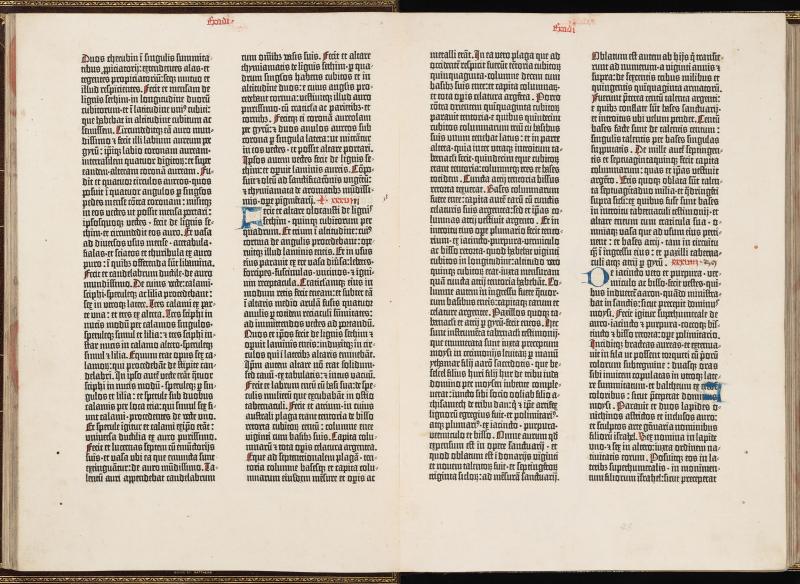 Exodi
Duos cherubin ī singulis summita-
tibus ꝓpiciatorij: extendentes alas et
tegentes propiciatoriū: seqz mutuo et
illud respicientes. Fecit et mensam de
lignis sethim in longitudine duorū
cubitorum et ī latitudine uni⁹ cubiti:
que habebat in altitudine cubitum ac
semissem. Circumdeditqz eā auro mun-
dissimo: et fecit illi labium aureum per
gyrū: ipiqz labio coronam auream
interrasilem quatuor digitorū: et super
eandem alteram coronā auream. Fu-
dit et quatuor circulos aureos: quos
posuit ī quatuor angulis
pedes mense cōtra coronam: misitqz
in eos vectes ut possit mensa portari:
ipsos quoqz vectes fecit de lignis se-
thim et circumdedit eos auro. Et vasa
ad diversos usus mense acetabula
fialas et sciatos et thuribula ex auro
puro: ī quibz offerenda sūt libamina.
Fecit et candelabrum ductile de auro
mundissimo. De cuius vecte calami
sciphi sperule ac lilia procedebant:
sex in utroqz latere. Tres calami ex par-
te una: et tres ex altera. Tres sciphi in
nucis modū per calamos singulos
sperule simul et lilia: et tres sciphi in-
star nucis in calamo altero sperule
simul et lilia. Equum erat opus sex ca-
lamorū: qui procedebāt de stipite can-
delabri. In ipso autē vecte erāt quatuor
sciphi in nucis modū sperule per sin-
gulos et lilia: et sperule sub duobus
calamis per loca tria: qui simul sex fi-
unt calami procedentes de vecte uno.
Et sperule igitur et calami ex ipso erāt:
universa ductilia ex auro purissimo.
Fecit et lucernas septem cū emūctorijs
suis: et vasa ubi ea que emuncta sunt
extinguātur: de auro mūdissimo. Ta-
lentū auri appendebat candelabrum
cum omībz vasis suis. Fecit et altare
thymiamatis de lignis sethim: p qua-
drum singlos habens cubitos et in
altitudine duos: e cuius anglis pro-
cedebant cornua: vestivitqz illud auro
purissimo: cū craticula ac parietibz et
cornibz. Fecitqz ei coronā aureolam
per gyrū: et duos anulos aureos sub
corona p singula latera: ut mittātur
in eos vectes et possit altare portari.
Ipsos autem vectes fecit de lignis se-
thim: et opuit laminis aureis. Cōpo-
suit et oleū ad sanctificationis ungētū:
et thymiama de aromatibz mūdissi-
mis opere pigmētarij. XXXVIII
Fecit et altare holocausti de lignis
sethim quinqz cubitorum per
quadrum. Et trium ī altitudine: cui⁹
cornua de angulis procedebant: ope-
ruitqz illud laminis ereis. Et in usus
eius paravit ex ere vasa diūsa: lebetes
forcipes fuscinulas uncinos et igni-
um receptacula. Craticulamqz eius in
modum retis fecit eneam: et subter eā
ī altaris medio arulā fusis quatuor
anulis p totidem reticuli sūmitates:
ad immittendos vectes ad portandū.
Quos et ip̄os fecit de lignis sethim et
opuit laminis ereis: induxitqz in cir-
culos qui ī lateribz altaris eminebāt.
Ip̄m autem altare nō erat solidum:
sed cavū ex tabulatis: et intus vacuū.
Fecit et labrum eneū cū basi sua: de spe-
culis mulierū que excubabāt in ostio
tabernaculi. Fecit et atrium: in cuius
australi plaga erant tentoria de bisso
retorta cubitorū centū: columne enee
viginti cum basibz suis. Capita colum-
narū et tota opis celatura argentea.
Eque ad septentrionalem plagā ten-
toria columne basesqz et capita colu-
mnarum eiusdem mēsure et opis ac
Exodi
metalli erāt. In ea vero plaga que ad
occidentē respicit fuerūt tētoria cubitorū
quinquaginta: columne decem cum
basibz suis enee: et capita columnarū
et tota opis celatura argētea. Porro
cōtra orientem quīquaginta cubitorū
paravit tentoria: e quibus quindecim
cubitos columnarum trium cū basibus
suis unum tenebat latus: et in parte
altera quia inter utraqz introitum ta-
bernaculi fecit: quindecim eque cubitorū
erant tentoria: columneqz tres et bases
totidem. Cuncta atrij tentoria bissus
retorta texuerat. Bases columnarum
fuere enee: capita autē earū cū cunctis
celaturis suis argentea: sed et ip̄as co-
lumnas atrij vestivit argento. Et in
introitu eius ope plumario fecit tento-
rium ex iacincto purpura vermiculo
ac bisso retorta: quod habebat viginti
cubitos in longitudine: altitudo vero
quinqz cubitorū erat: iuxta mensuram
quā cuncta atrij tentoria habebāt. Co-
lumne autem in ingressu fuere quatuor
cum basibus eneis: capitaqz earum et
celature argentee. Paxillos quoqz ta-
bernaculi et atrij p gyrū fecit eneos. Hec
sunt instrumenta tabernaculi testimonij:
que enumerata sunt iuxta preceptum
moysi in cerimonijs leviticis p manū
ythamar filij aaron sacerdotis: que be-
seleel filius huri filij hur de tribu iuda
domino per moysen iubente comple-
verat: iuncto sibi socio ooliab filio a-
chisamech de tribu dan: q̄ et ip̄e artifex
lignorū egregius fuit: et polimitari⁹
atqz plumari⁹ ex iacincto purpura
vermiculo et bisso. Omne aurum qd̄
expensum est in opere sanctuarij et
quod oblatum est ī donarijs viginti
et novem talentorū fuit: et septingētorū
triginta siclorū: ad mēsurā sanctuarij.
Oblatum est autem ab hijs q̄ transie-
runt ad numerum a viginti annis et
supra: de sexcentis tribus milibus et
quingentis quinquaginta armatorū.
Fuerunt preterea centū talenta argenti:
e quibz conflate sūt bases sanctuarij
et introitus ubi velum pendet. Centū
bases facte sunt de talentis centum:
singulis talentis per bases singulas
supputatis. De mille autē septingen-
tis et septuagintaquinqz fecit capita
columnarum: quas et ip̄as vestivit
argēto. Eris quoqz oblata sūt talen-
ta septuagintaduo milia: et q̄dringēti
supra sicli: ex quibus fuse sunt bases
in introitu tabernaculi testimonij: et
altare eneum cum craticula sua: o-
mniaqz vasa que ad usum eius perti-
nent: et bases atrij tam in circuitu
q̄ ī ingressu eius: et paxilli taberna-
culi atqz atrij p gyrū. XXXIX
De iacincto vero et purpura ver-
miculo ac bisso: fecit vestes qui-
bus indueret aaron quādo ministra-
bat in sanctis: sicut precepit dominus
moysi. Fecit igitur superhumerale de
auro iacincto et purpura coccoqz bis-
tincto et bisso retorta: ope polimitario.
Inciditqz bracteas aureas et extenua-
vit in fila ut possent torqueri cū priorū
colorum subtegmine: duasqz oras
sibi invicem copulatas in utroqz late-
re summitatum: et baltheum ex eisdem
coloribus: sicut preceperat dominus
moysi. Paravit et duos lapides o-
nichinos astrictos et inclusos auro:
et sculptos arte gēmaria nominibus
filiorū israhel. Sex nomina in lapide
uno et sex in altero: iuxta ordinem na-
tivitatis eorum. Posuitqz eos in la-
teribz superhumeralis in monimen-
tum filiorum israhel: sicut preceperat